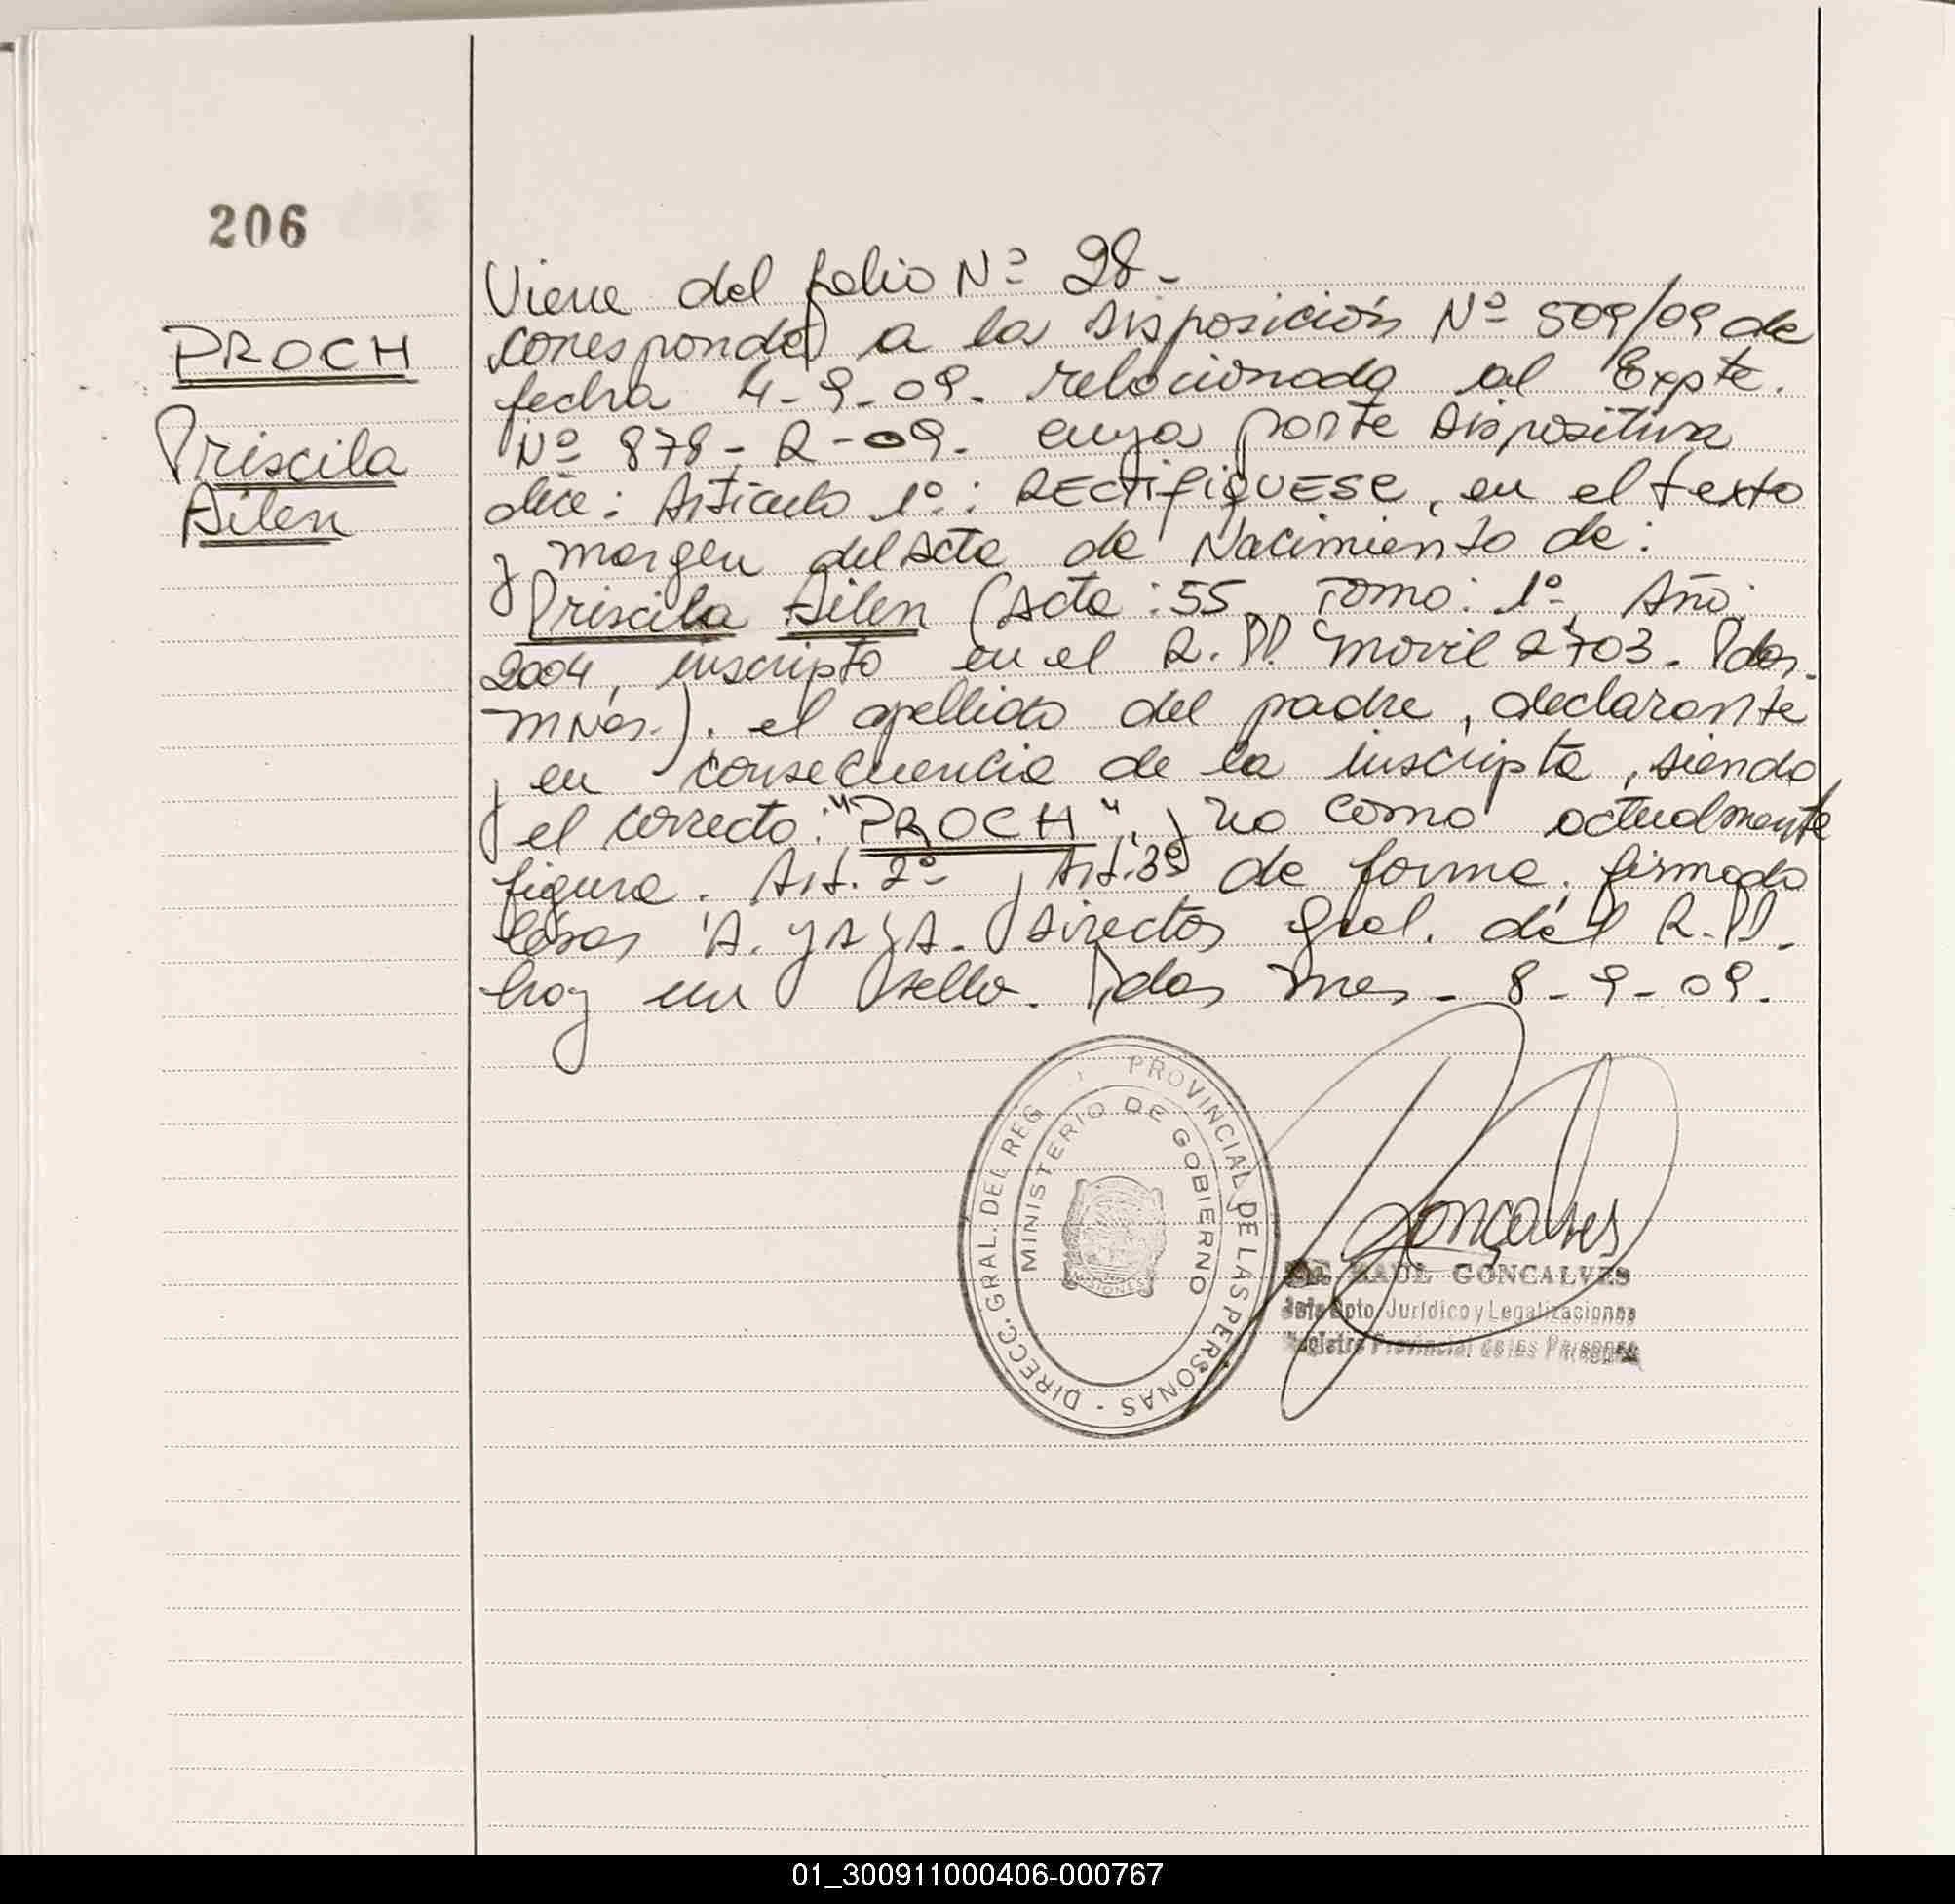 206
PROCH
Priscila
Ailen
Viene del folio Nº 28-
corresponde a la Disposición Nº 509/09 de
fecha 4-9-09. relacionada al Expte.
Nº 878-R-09. cuya parte Dispositiva
dice: Artículo 1º: RECTIFIQUESE, en el texto
y margen del Acta de Nacimiento de:
Priscila Ailen (Acta: 55, Tomo: 1º, Año:
2004, inscripto en el R.P.P. Movil 2703. Pdas.
Mnes.). el apellido del padre, declarante
y en consecuencia de la inscripta, siendo
el correcto: "PROCH", y no como actualmente
figura. Art. 2º y Art. 3º de forma. firmado
A. Director Gral. del R.P.P.
hay un sello. Pdas Mnes - 8-9-09.
DIRECC. GRAL. DEL REG PROVINCIAL DE LAS PERSONAS -
MINISTERIO DE GOBIERNO
MISIONES
Gonçalves
RAUL GONCALVES
Jefe Dpto. Jurídico y Legalizaciones
Registro Provincial de las Personas
01_300911000406-000767